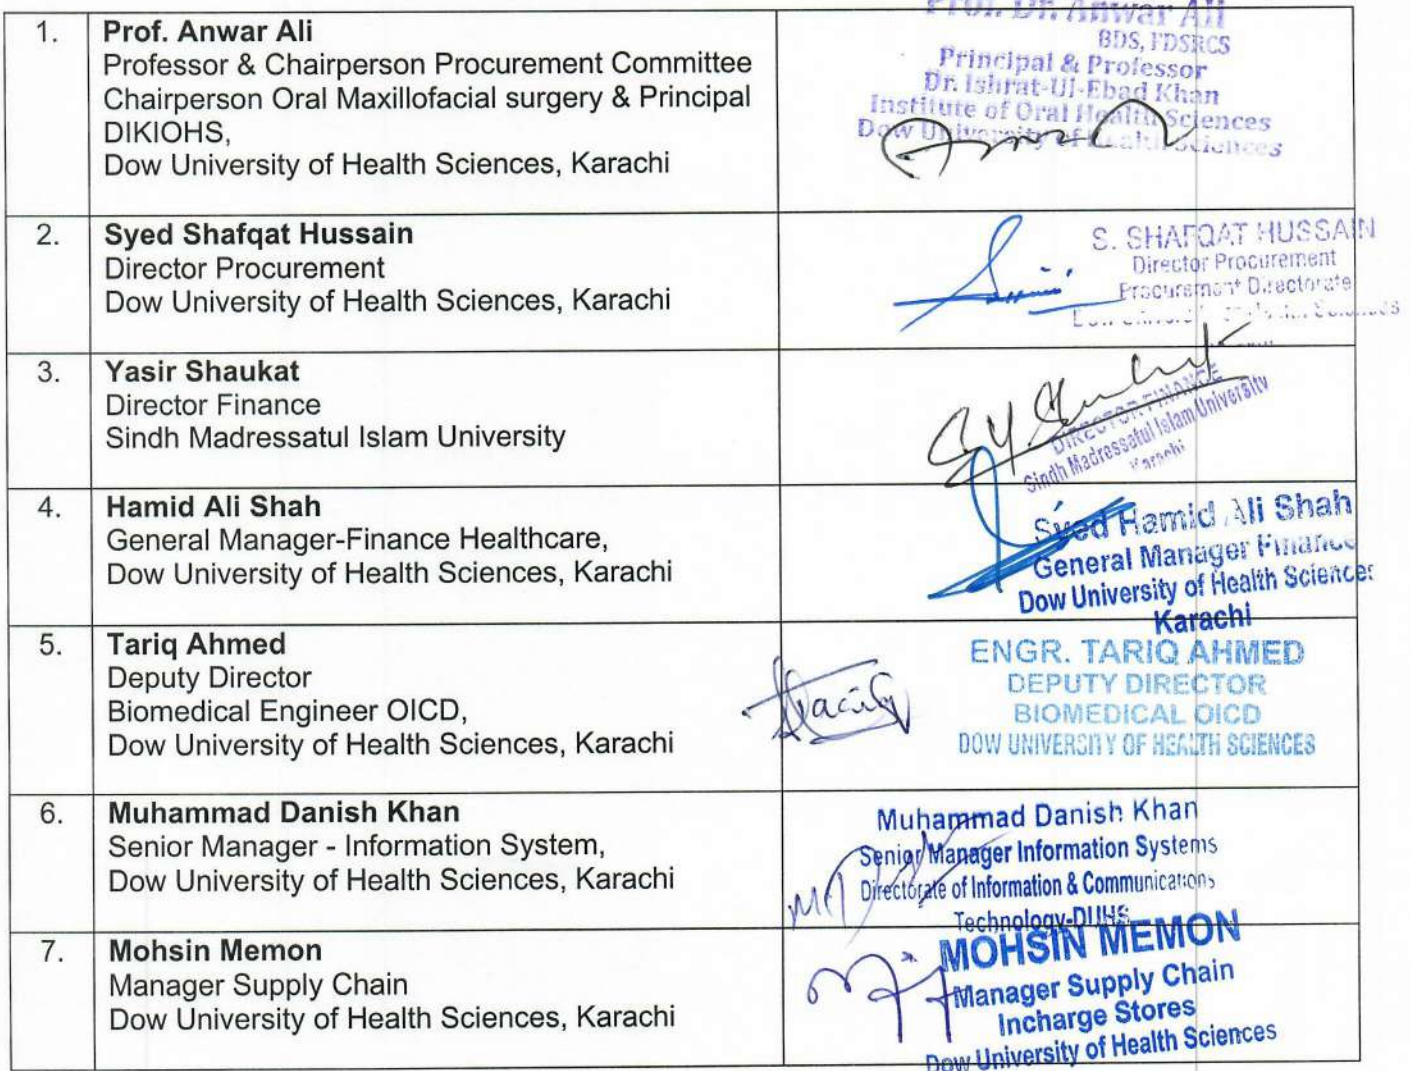 1.
Prof. Anwar Ali
Professor & Chairperson Procurement Committee
Chairperson Oral Maxillofacial surgery & Principal
DIKIOHS,
Dow University of Health Sciences, Karachi
Prof. Dr. Anwar Ali
BDS, FDSRCS
Principal & Professor
Dr. Ishrat-Ul-Ebad Khan
Institute of Oral Health Sciences
Dow University of Health Sciences
2.
Syed Shafqat Hussain
Director Procurement
Dow University of Health Sciences, Karachi
S. SHAFQAT HUSSAIN
Director Procurement
Procurement Directorate
3.
Yasir Shaukat
Director Finance
Sindh Madressatul Islam University
DIRECTOR FINANCE
Sindh Madressatul Islam University
Karachi
4.
Hamid Ali Shah
General Manager-Finance Healthcare,
Dow University of Health Sciences, Karachi
Syed Hamid Ali Shah
General Manager Finance
Dow University of Health Sciences
Karachi
5.
Tariq Ahmed
Deputy Director
Biomedical Engineer OICD,
Dow University of Health Sciences, Karachi
ENGR. TARIQ AHMED
DEPUTY DIRECTOR
BIOMEDICAL OICD
DOW UNIVERSITY OF HEALTH SCIENCES
6.
Muhammad Danish Khan
Senior Manager - Information System,
Dow University of Health Sciences, Karachi
Muhammad Danish Khan
Senior Manager Information Systems
Directorate of Information & Communications
Technology-DUHS
7.
Mohsin Memon
Manager Supply Chain
Dow University of Health Sciences, Karachi
MOHSIN MEMON
Manager Supply Chain
Incharge Stores
Dow University of Health Sciences